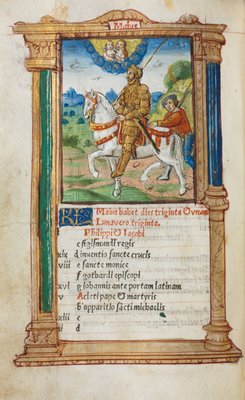 Maius
KL Maius habet dies triginta & vnum
Luna vero triginta.
Philippi & Jacobi
c sigismundi regis
xix d inuentio sancte crucis
viii e sancte monice
f gothardi episcopi
xvi g iohannis ante portam latinam
v A cleti pape & martyris
b apparitio sācti michaelis
xiii c
ii d